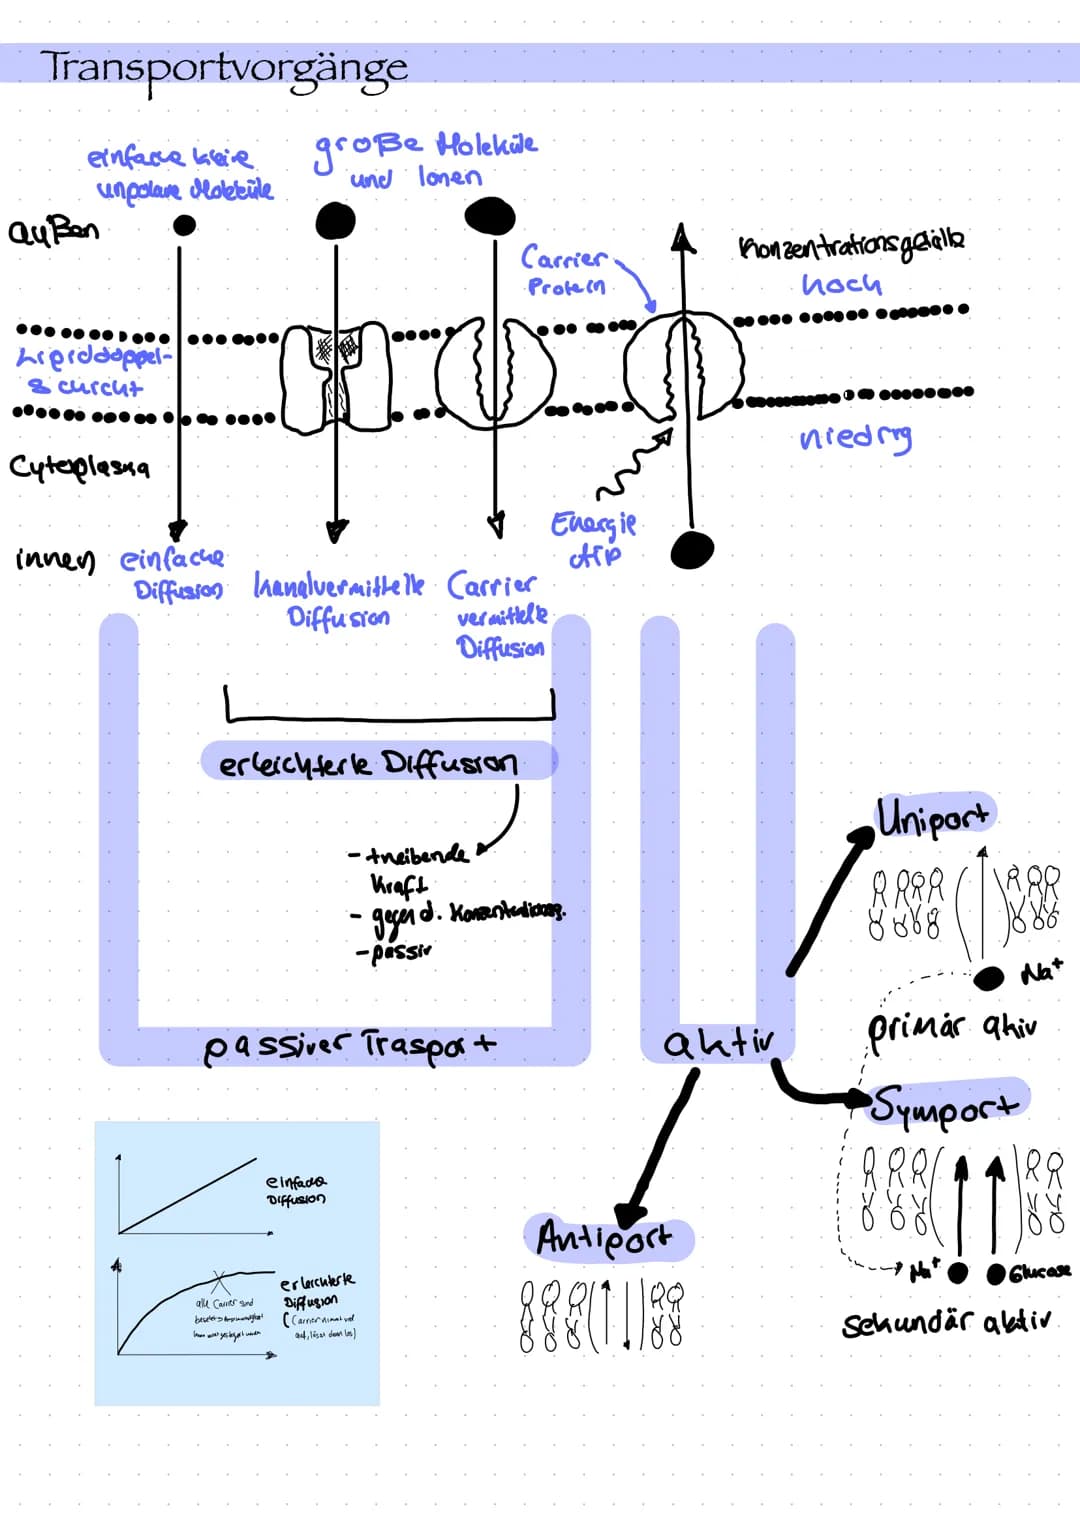 Transportvorgänge
einfache kleine
unpolare Moleküle
große Moleküle
und Ionen
außen
Carrier
Protein
Konzentrationsgefälle
hoch
Lipiddoppel-
schicht
niedrig
Cytoplasma
Energie
ATP
innen
einfache
Diffusion
kanalvermittelte
Diffusion
Carrier
vermittelte
Diffusion
erleichterte Diffusion
- treibende
Kraft
- gegen d. Konzentrationsg.
- passiv
passiver Trasport
aktiv
Uniport
Na+
primär aktiv
Symport
Na+
Glucose
sekundär aktiv
Antiport
einfache
Diffusion
erleichterte
Diffusion
(Carrier nimmt viel
auf, lässt dann los)
alle Carrier sind
besetzt